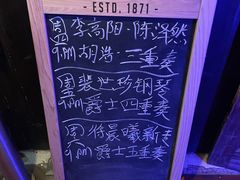 - ESTD. 1871 -
周四 李高阳·陈泽然
9pm 胡浩·三重奏
周 裴世珍钢琴
9pm 爵士四重奏
周 徐晨曦新专
9pm 爵士五重奏